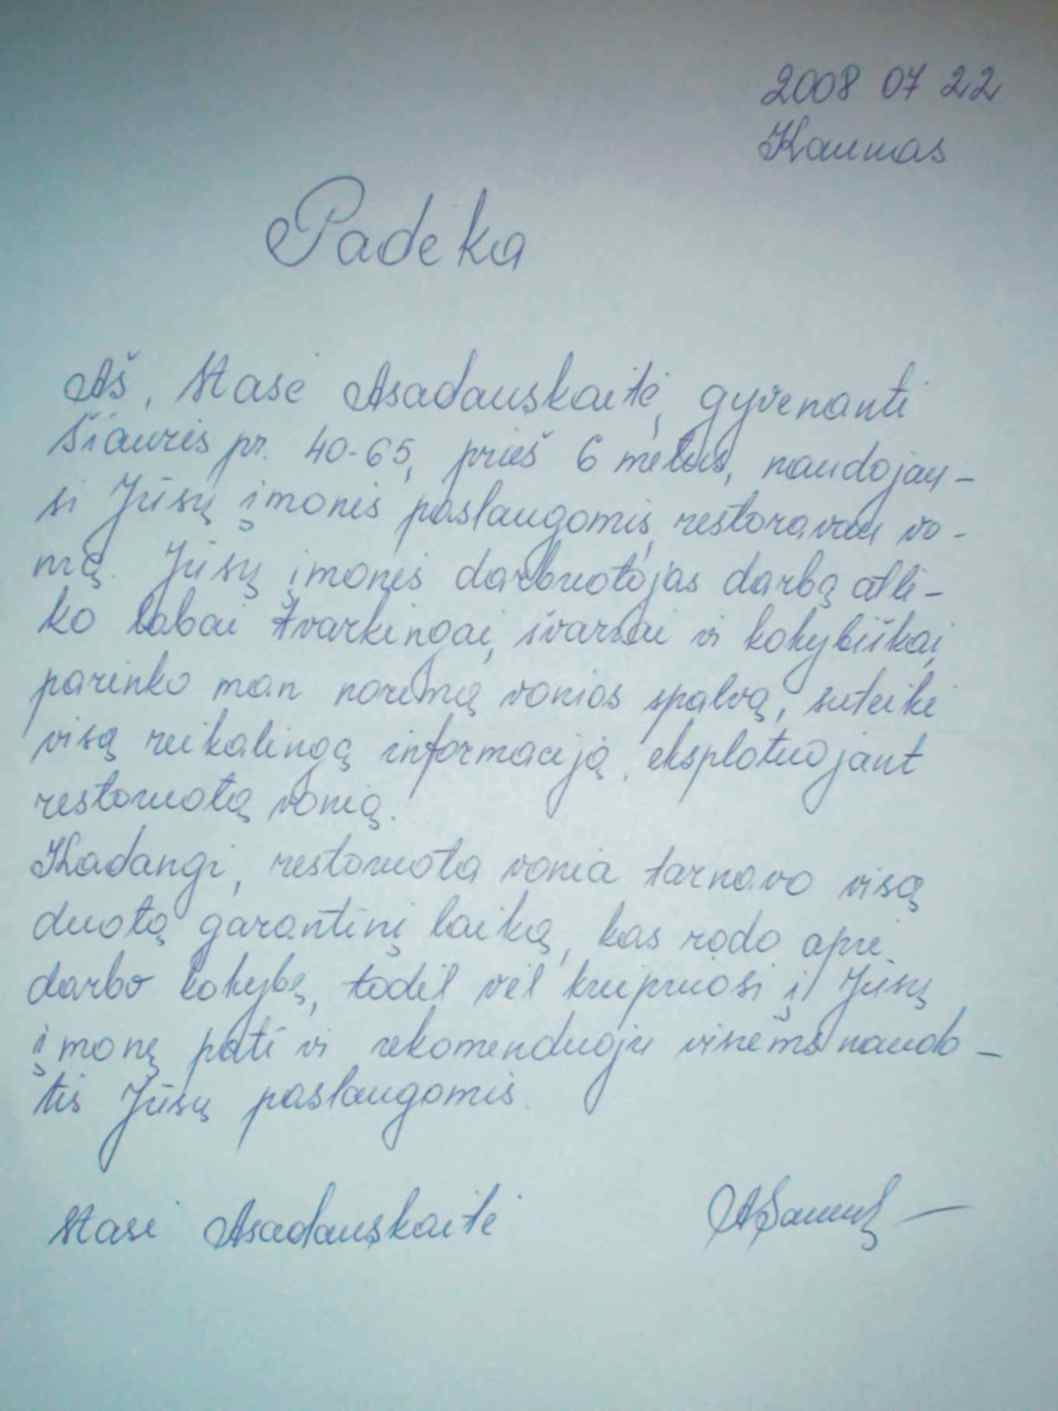 2008 07 22
Kaunas
Padėka
Aš, Stasė Asadauskaitė, gyvenanti
Šiaurės pr. 40-65, prieš 6 metus, naudojau-
si Jūsų įmonės paslaugomis, restauravau vo-
nią. Jūsų įmonės darbuotojas darbą atli-
ko labai tvarkingai, švariai ir kokybiškai,
parinko man norimą vonios spalvą, suteikė
visą reikalingą informaciją, eksplotuojant
restauruotą vonią.
Kadangi, restauruota vonia tarnavo visą
duotą garantinį laiką, kas rodo apie
darbo kokybę, todėl vėl kreipiuosi į Jūsų
įmonę pati ir rekomenduoju visiems naudo-
tis Jūsų paslaugomis.
Stasė Asadauskaitė